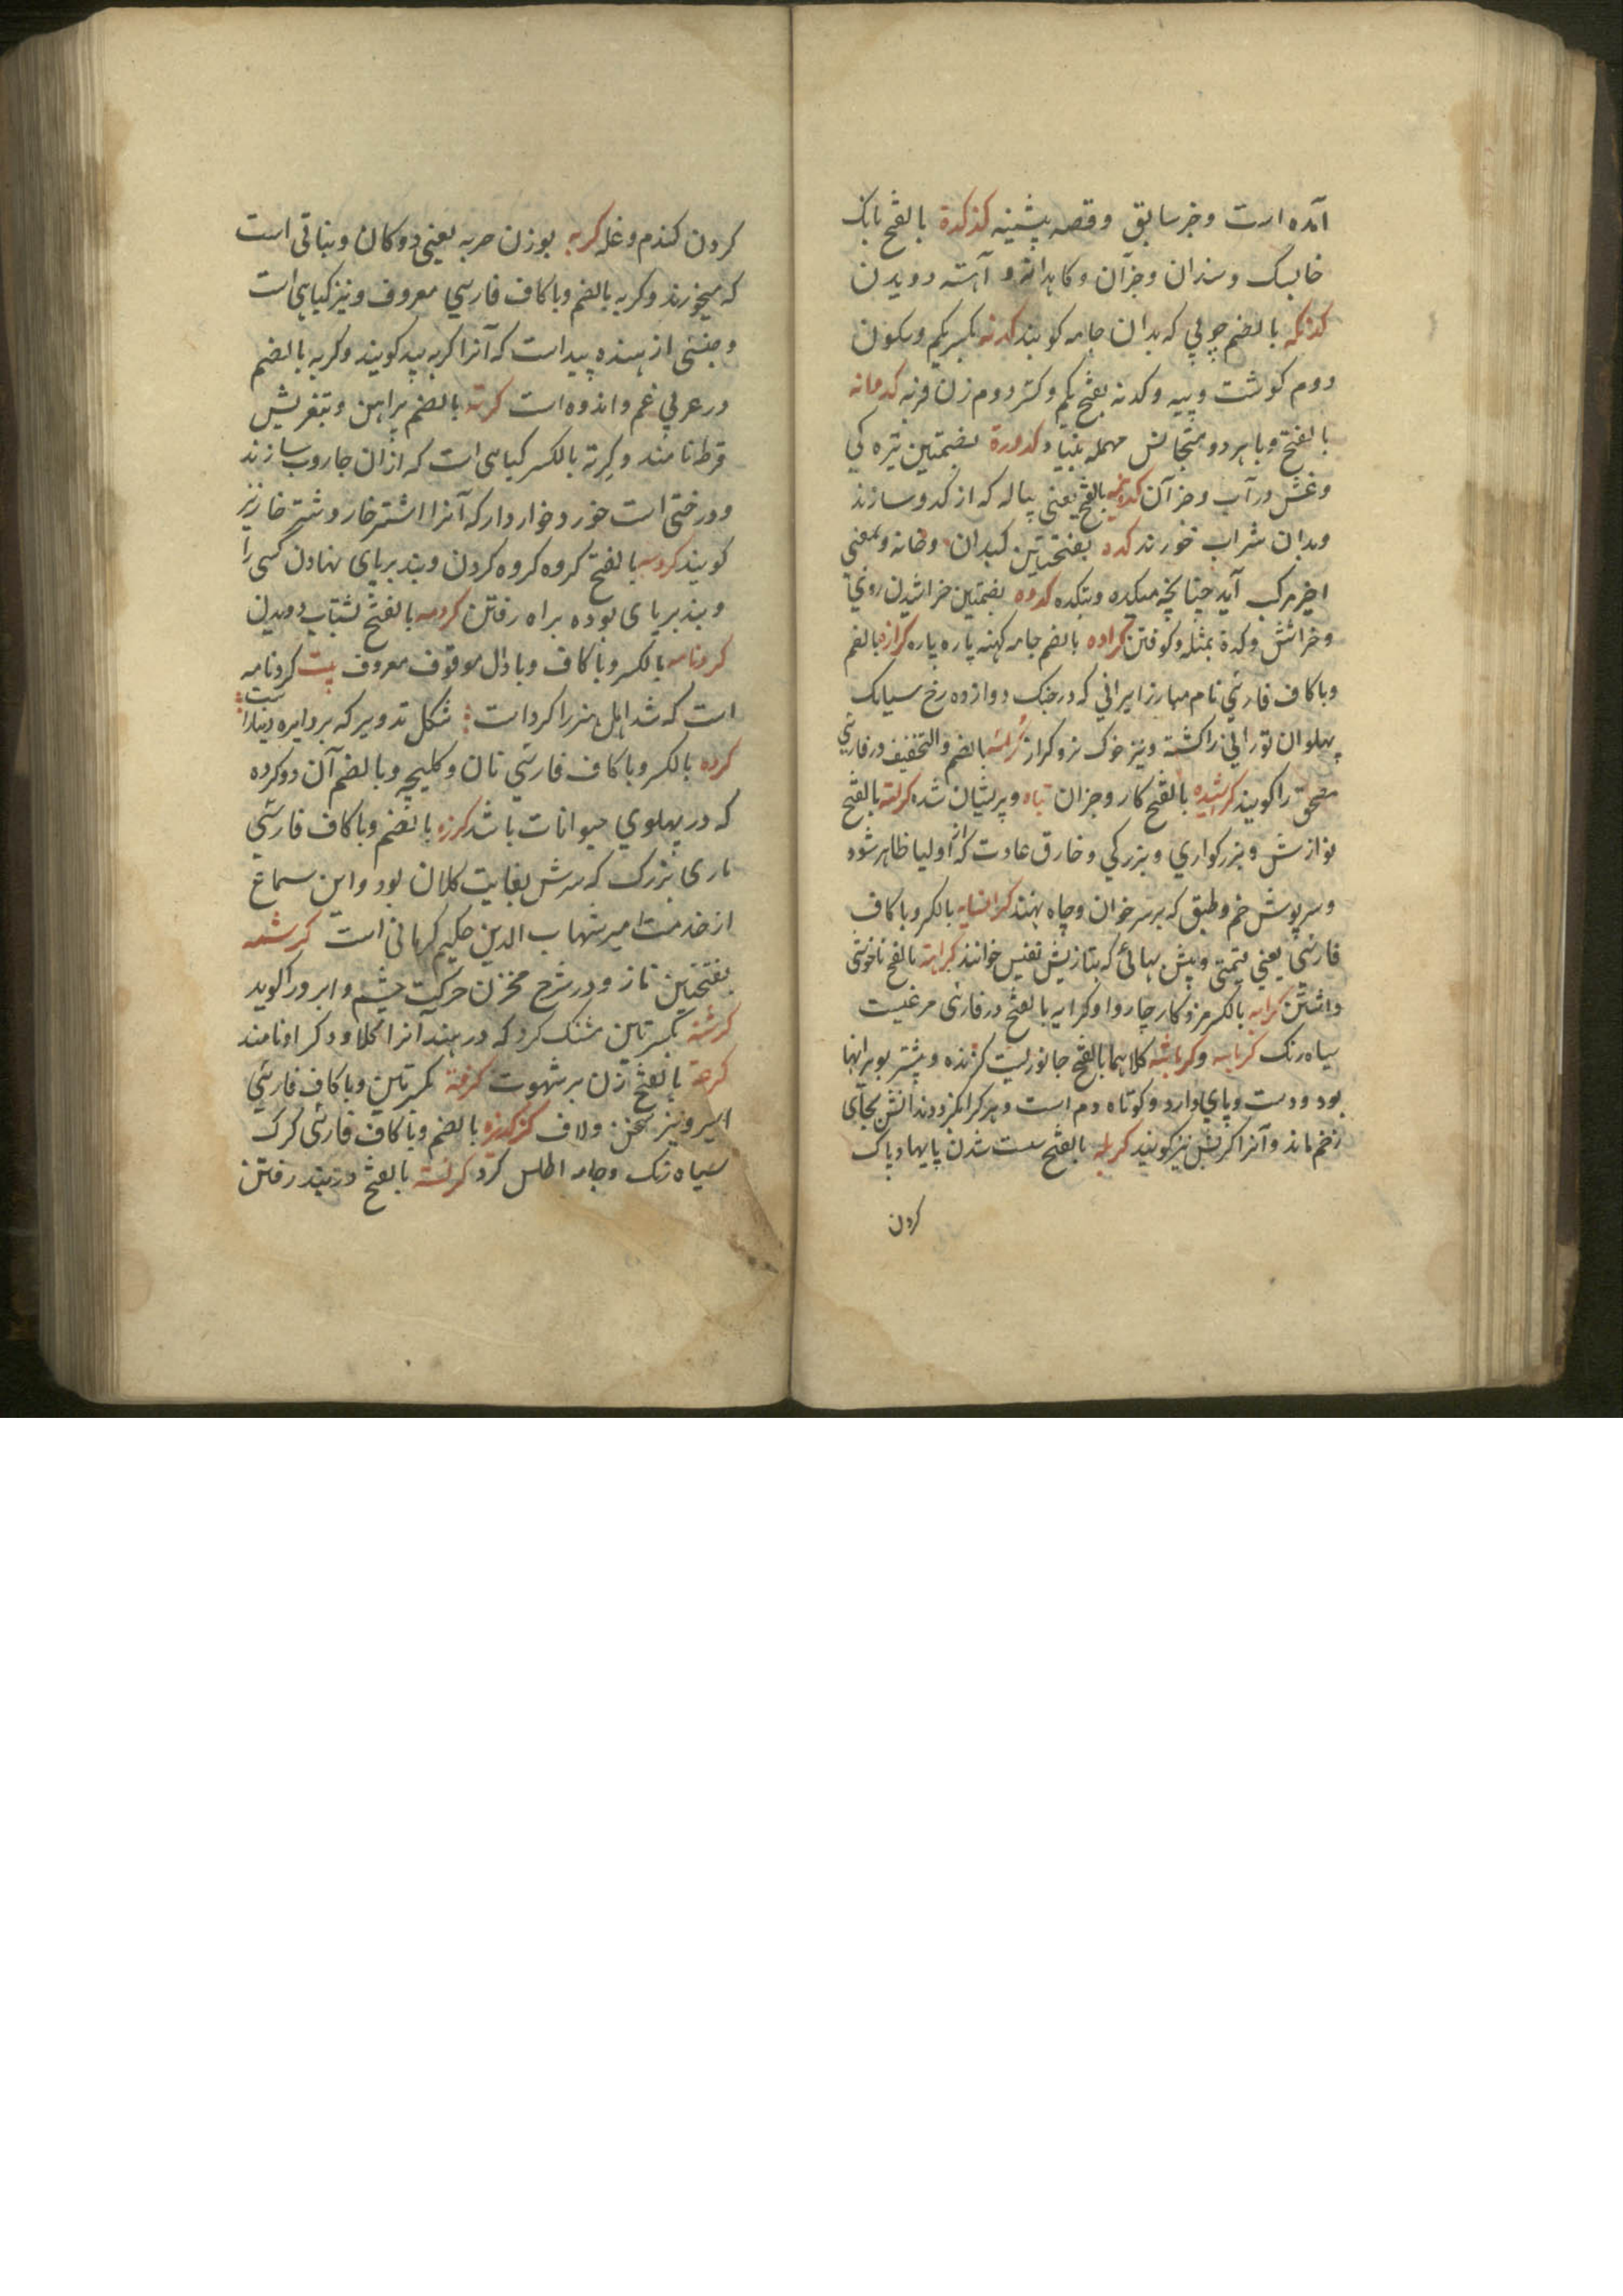 آمده است و خبر سابق و قصه پیشینه کذکدة بالفتح بانک
خایسک و سندان و جز آن و کاهدانه و آهسته دویدن
کدنکه بالضم چوبی که بدان جامه کوبند کدنه بکسر یکم و سکون
دوم کوشت و پیه و کدنه بفتح یکم و کسر دوم زن فربه
بالفتح و با هر دو متجانس مهمله کدورة بضمتین تیره کی
و غش در آب و جز آن بالفتح یعنی پیاله که از کدو سازند
و بدان شراب خورند کده بفتحتین کلیدان و خانه و بمعنی
اخیر مرکب آید چنانچه میکده و بتکده کدوه بضمتین خراشیدن روی
و خراشش و کدة بمثله و کوفتن کراده بالضم جامه کهنه پاره پاره کرازه بالضم
و با کاف فارسی نام مبارز ایرانی که در جنک دوازده رخ سیامک
پهلوان تورانی را کشته و نیز خوک نر و کراز بالضم و التخفیف در فارسی
را کویند کراشیده بالفتح کار و جز آن تباه و پریشان شده بالفتح
نوازش و بزرکواری و بزرکی و خارق عادت که از اولیا ظاهر شود
و سرپوش خم و طبق که بر سر خوان و چاه نهند کرانمایه بالکسر و با کاف
فارسی یعنی قیمتی و بیش بهائی که بتازیش نفیس خوانند کراهة بالفتح ناخوش
داشتن کرایه بالکسر مزد کار چاروا و کرایه بالفتح در فارسی مرغیست
سیاه رنک کرباسه و کرباشه کلاهما بالفتح جانوریست کزنده و بیشتر بویرانها
بود و دست و پای دارد و کوتاه دم است و هر کرا بکزد دندانش بجای
زخم ماند و آنرا کربش نیز کویند کربله بالفتح سست شدن پایها و پاک
کردن
کردن کندم و غله کربه بوزن حربه یعنی دوکان و نباتی است
که میخورند و کربه بالضم و با کاف فارسی معروف و نیز کیاهی است
و جنسی از بید است که آنرا کربه بید کویند و کربه بالضم
در عربی غم و اندوه است کرته بالضم پیراهن و بتعریبش
قرطه نامند و کرته بالکسر کیاهی است که از آن جاروب سازند
و درختی است خورد خواردار که آنرا اشتر خار و شتر خار نیز
کویند کردسه بالفتح کروه کروه کردن و بند بر پای نهادن کسی را
و بند بر پای بوده براه رفتن بالفتح بشتاب دویدن
کردنامه بالکسر و با کاف و با دال موقوف معروف بیت کردنامه
است که شد اهل هنر را کردت شکل تدویر که بر دایره دینارست
کرده بالکسر و با کاف فارسی نان و کلیچه و بالضم آن دو کرده
که در پهلوی حیوانات باشد کرزه بالضم و با کاف فارسی
ماری بزرک که سرش بغایت کلان بود و این سماع
از خدمت امیر شهاب الدین حکیم کرمانی است کرشمه
بفتحتین ناز و در شرح مخزن حرکت چشم و ابرو را کوید
کرشنه بکسرتین مشنک کرد که در هند آنرا کلاو و کراو نامند
بالفتح زن پر شهوت کرفته بکسرتین و با کاف فارسی
اسیر و نیز سخن و لاف بالضم و با کاف فارسی کرک
سیاه رنک و جامه اطلس کرد بالفتح در بند رفتن